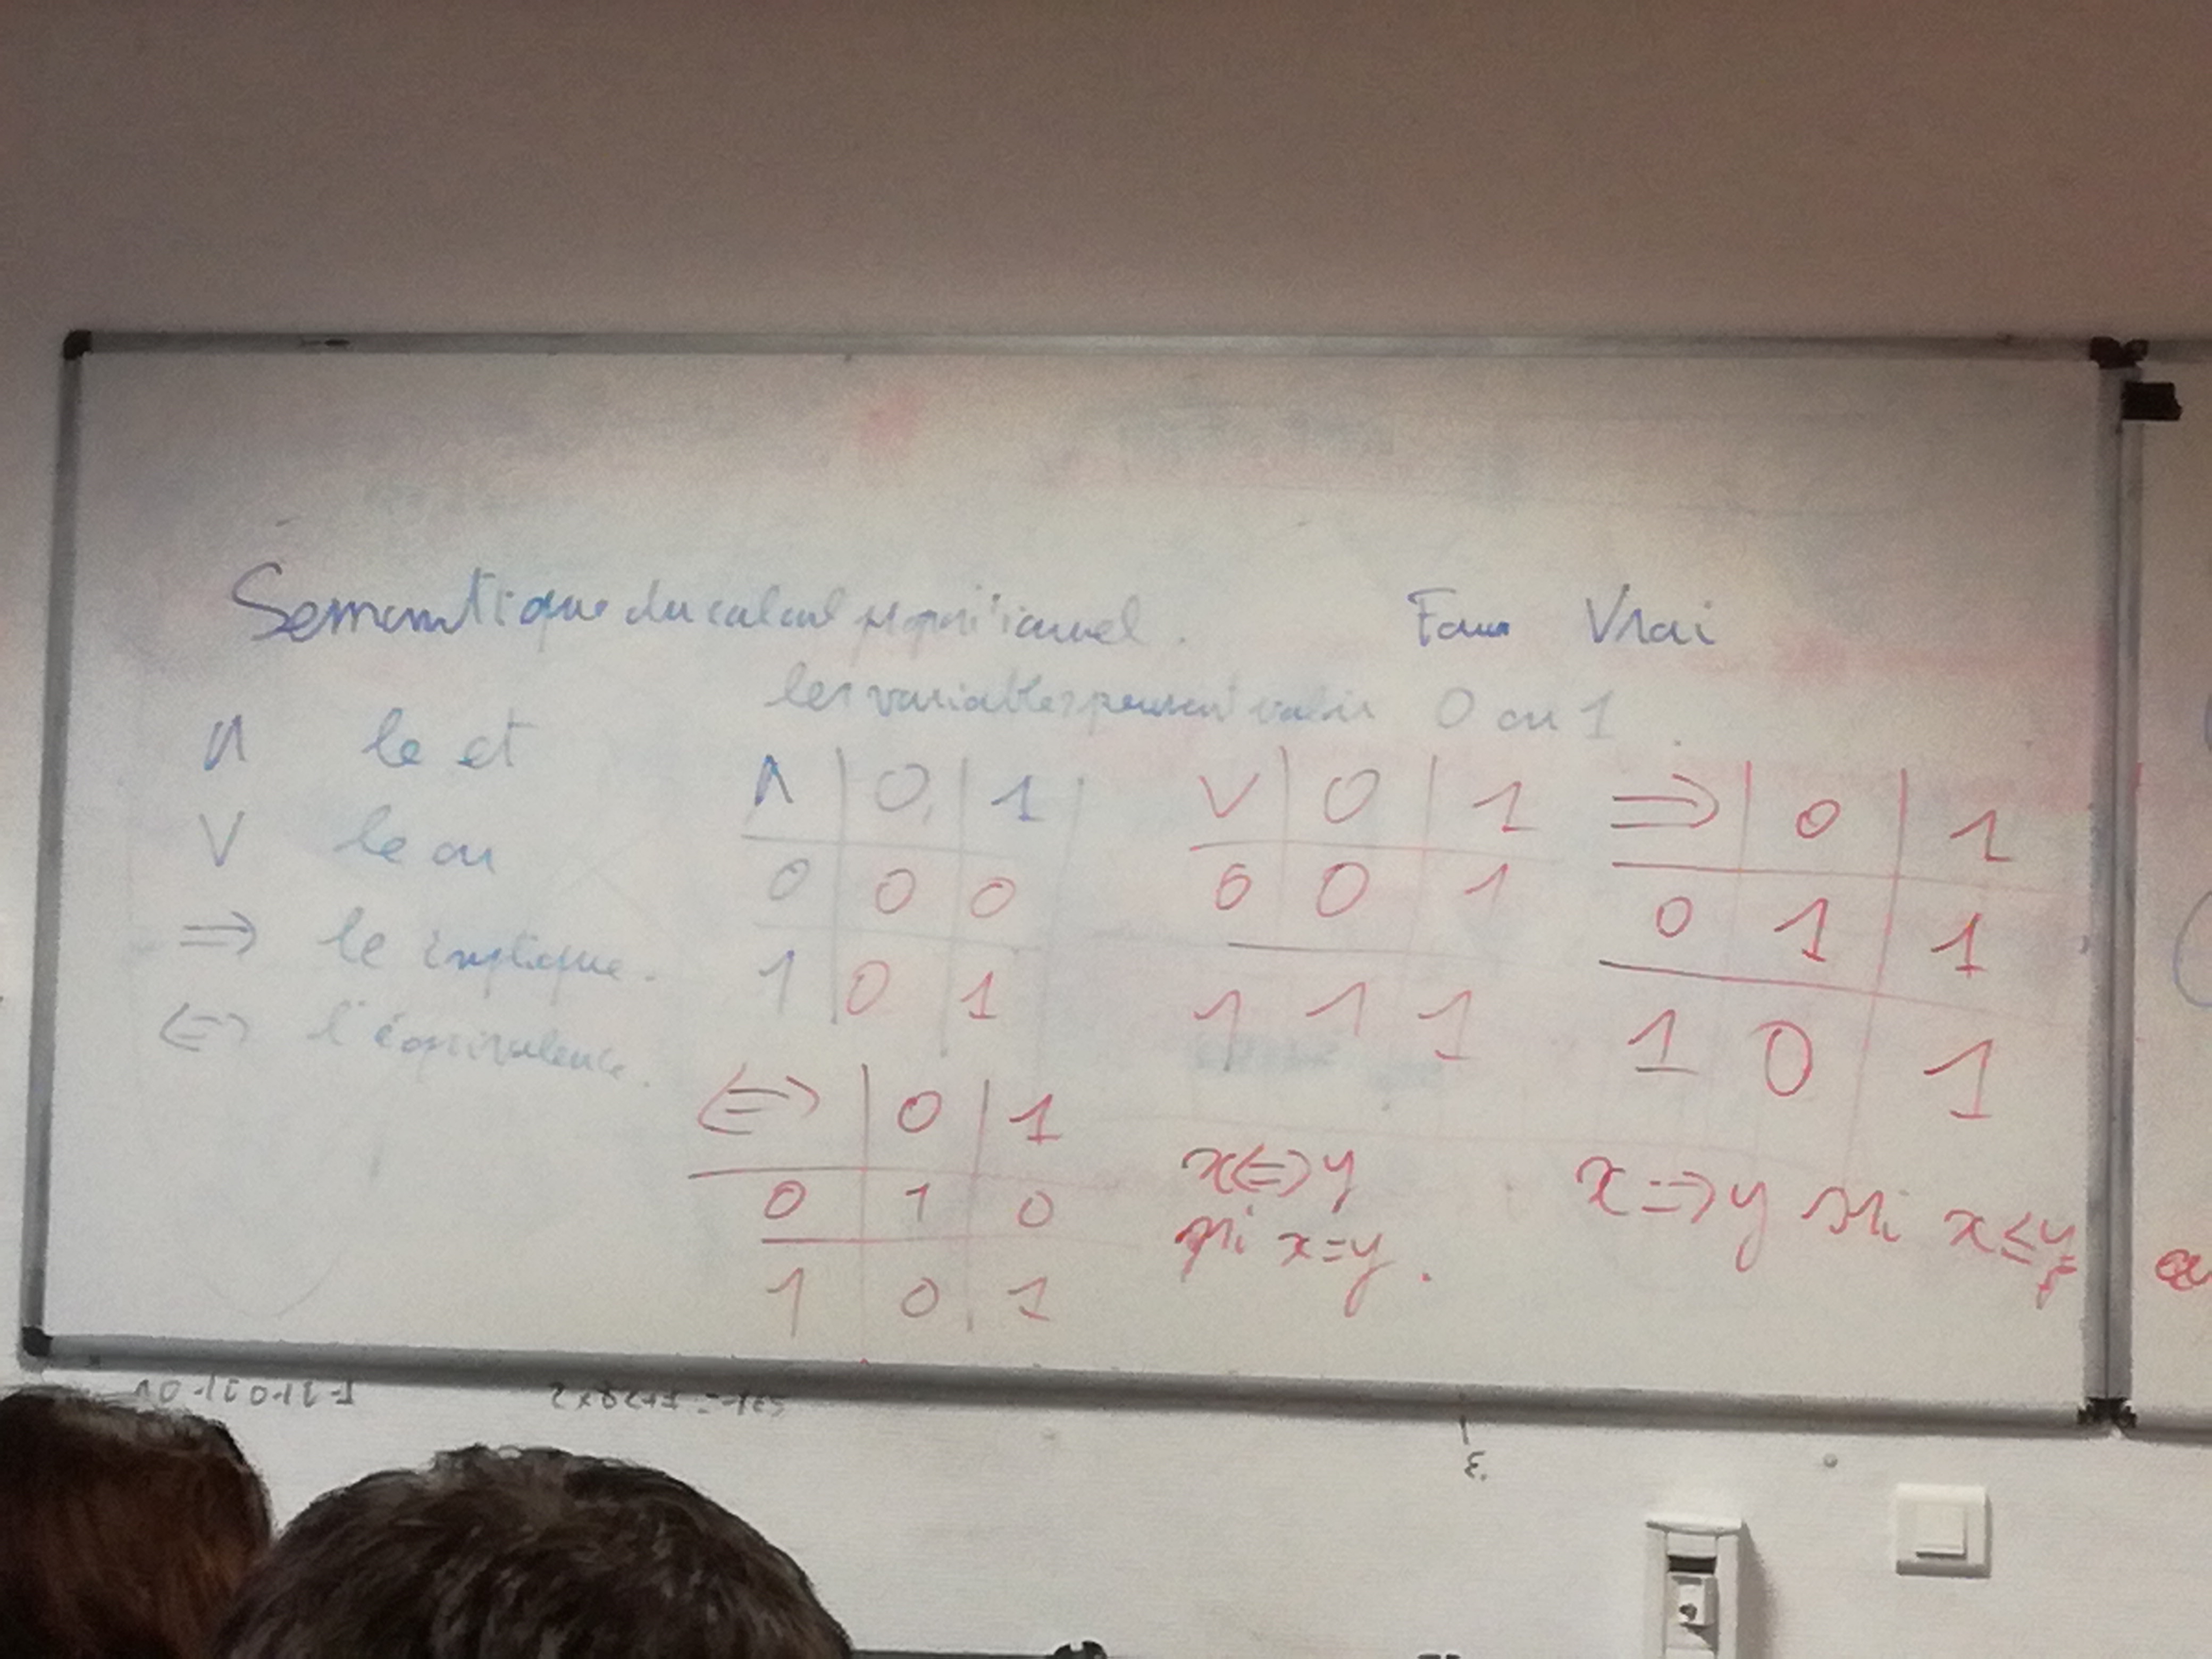 Semantique du calcul propositionnel. Faux Vrai
les variables peuvent valoir 0 ou 1.
∧ le et
∨ le ou
⇒ le implique.
⇔ l'équivalence.
∧ 0 1
0 0 0
1 0 1
∨ 0 1
0 0 1
1 1 1
⇒ 0 1
0 1 1
1 0 1
⇔ 0 1
0 1 0
1 0 1
x⇔y
ssi x=y.
x⇒y ssi x≤y